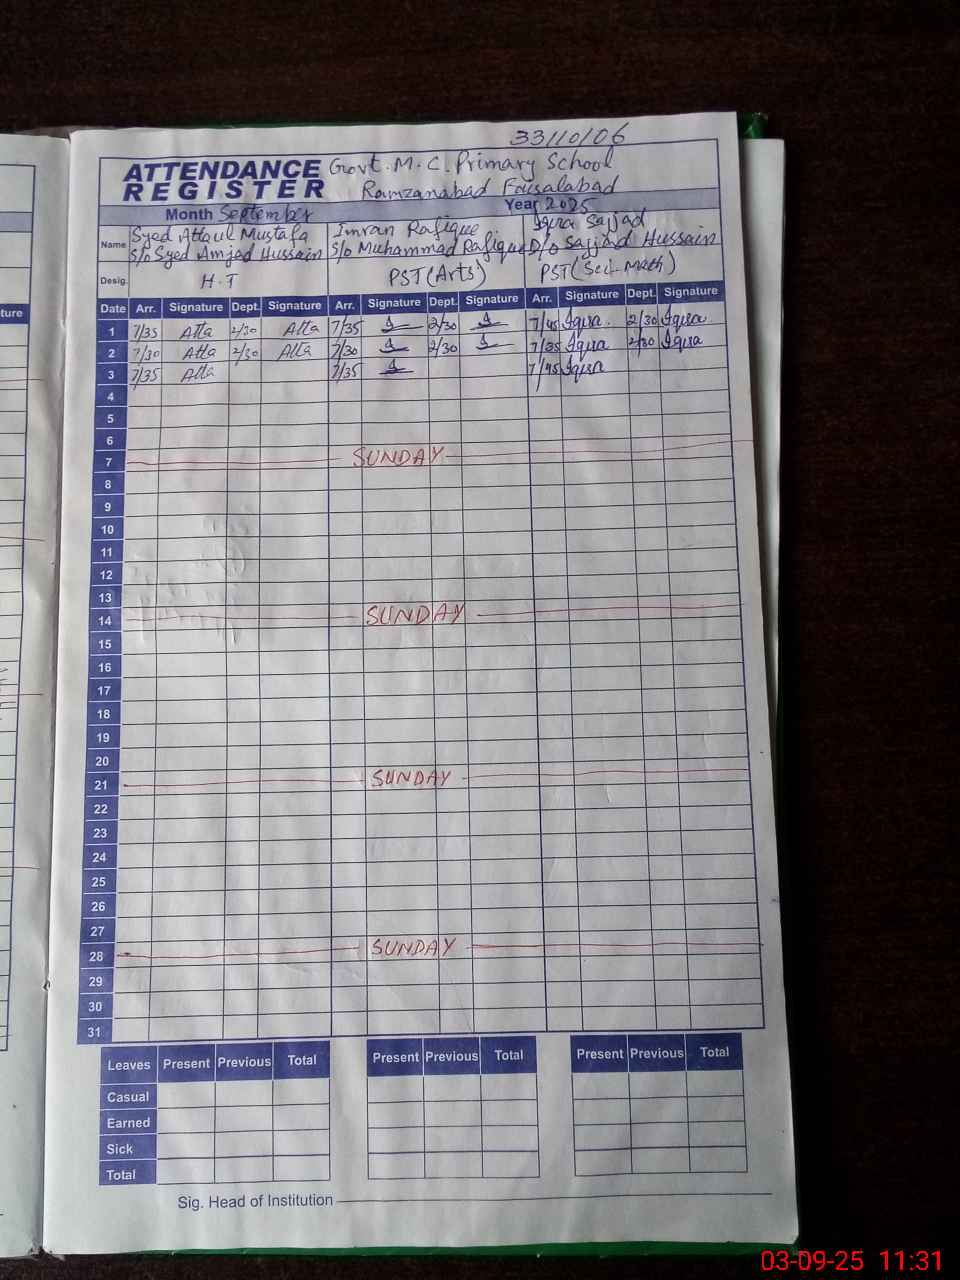 33110106
ATTENDANCE REGISTER Govt. M. C. Primary School
Ramzanabad Faisalabad
Month September Year 2025
Name Syed Attaul Mustafa S/o Syed Amjad Hussain Imran Rafique S/o Muhammad Rafique Iqra Sajjad D/o Sajjad Hussain
Desig. H.T PST (Arts) PST (Sci-Math)
Date Arr. Signature Dept. Signature Arr. Signature Dept. Signature Arr. Signature Dept. Signature
1 7/35 Atta 2/30 Atta 7/35 2/30 7/45 Iqra 2/30 Iqra
2 7/30 Atta 2/30 Atta 7/30 2/30 7/35 Iqra 2/30 Iqra
3 7/35 Atta 7/35 7/45 Iqra
4
5
6
7 SUNDAY
8
9
10
11
12
13
14 SUNDAY
15
16
17
18
19
20
21 SUNDAY
22
23
24
25
26
27
28 SUNDAY
29
30
31
Leaves Present Previous Total Present Previous Total Present Previous Total
Casual
Earned
Sick
Total
Sig. Head of Institution
ture
03-09-25 11:31